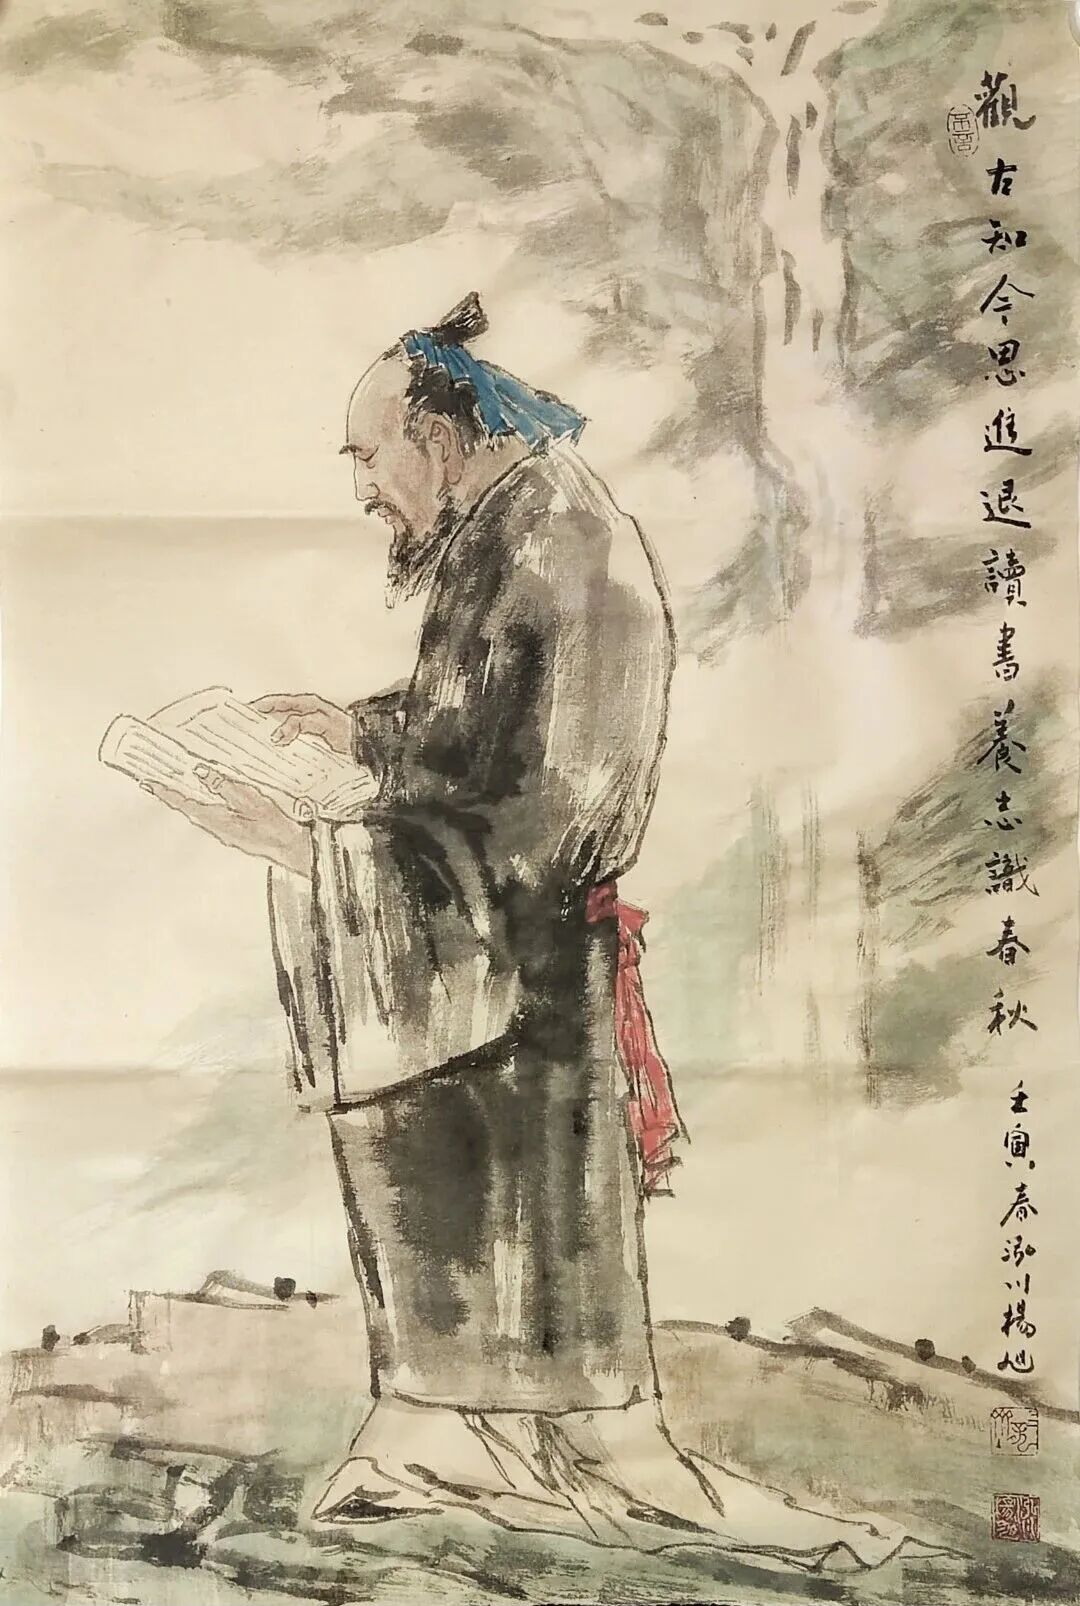 觀古知今思進退讀書養志識春秋
壬寅春泓川楊旭